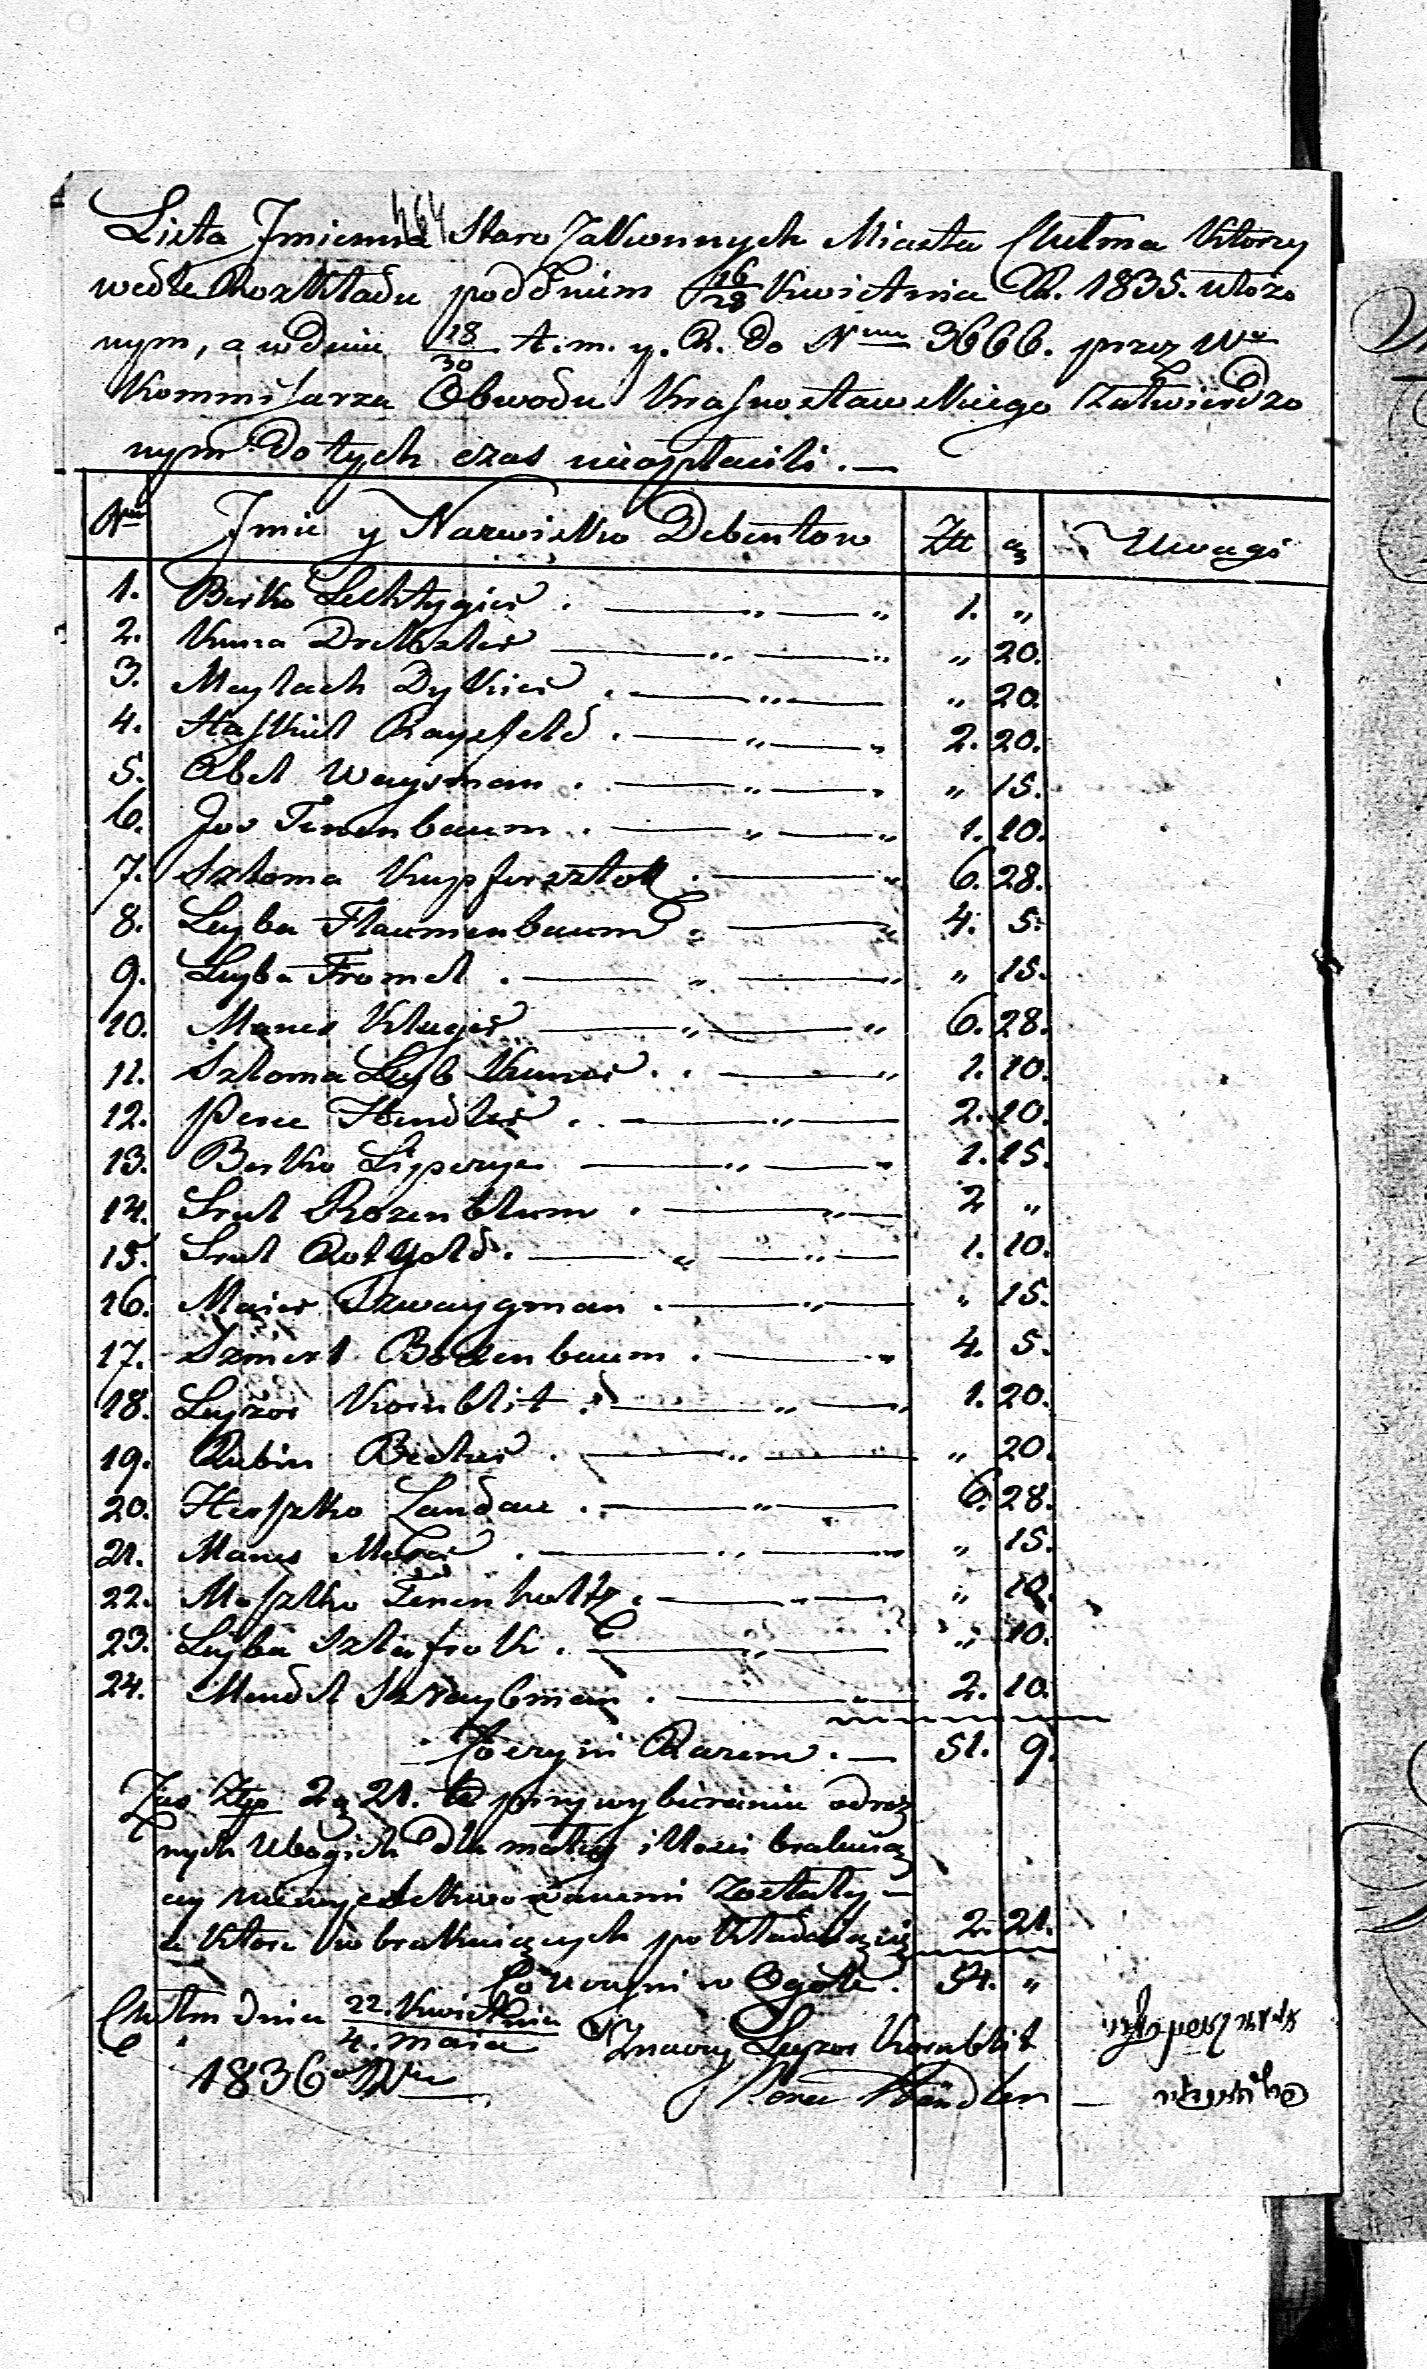 464
Lista Jmienna Starozakonnych Miasta Chełma którzy
wedle Rozkładu pod dniem 16/28 kwietnia R. 1835. ułożo
nym, a w dniu 18/30 t. m. y. R. do Nru 3666. przez We
Kommissarza Obwodu Krasnostawskiego zatwierdzo
nym do tych czas nieopłacili. —
Nro Jmie y Nazwisko Debentow Złt gr Uwagi
1. Berko Lichtygier . — „ — „ 1. „
2. Kuna Drekszler — „ — „ „ 20.
3. Maylach Dykier . — „ — „ 20.
4. Haskiel Rayzfeld . — „ — „ 2. 20.
5. Abel Waysman . — „ — „ „ 15.
6. Jos Tenenbaum . — „ — „ 1. 10.
7. Szloma Kupfersztok . — „ 6. 28.
8. Leyba Flaumenbaum . — „ 4. 5.
9. Leyba Fromel . — „ — „ „ 15.
10. Manes Kluger — „ — „ 6. 28.
11. Szloma Leyb Kuner . . — „ 1. 10.
12. Perec Hendler . — „ — 2. 10.
13. Berko — „ — „ 1. 15.
14. Srul Rozenblum . — „ — 2 „
15. Srul Rotgold . — „ — „ — 1. 10.
16. Maier Szwaygman . — „ — „ 15.
17. Szmerl Boxenbaum . — „ 4. 5.
18. Leyzor Kornblit . — „ — „ 1. 20.
19. Rubin Becher . — „ — „ 20.
20. Herszko Landau . — „ — 6. 28.
21. Manes . — „ — „ „ 15.
22. Moszko Tenenholtz . — „ — „ 10.
23. Leyba Szlafrok . — „ — „ 10.
24. Mendel Szraybman . — „ — 2. 10.
Czyni Razem . — 51. 9.
Zaś Złp 2 g 21. te przy wybieraniu od roż
nych Ubogich dla małey ilości brakuią
cy niewyexekwowanemi zostały —
a które w brakuiących pokładaią się 2. 21.
Co uczyni w Ogóle . 54. „
Chełm dnia 22. Kwietnia / 4. Maia
1836 Rku
Leyzor Kornblit
Perec Hendler —